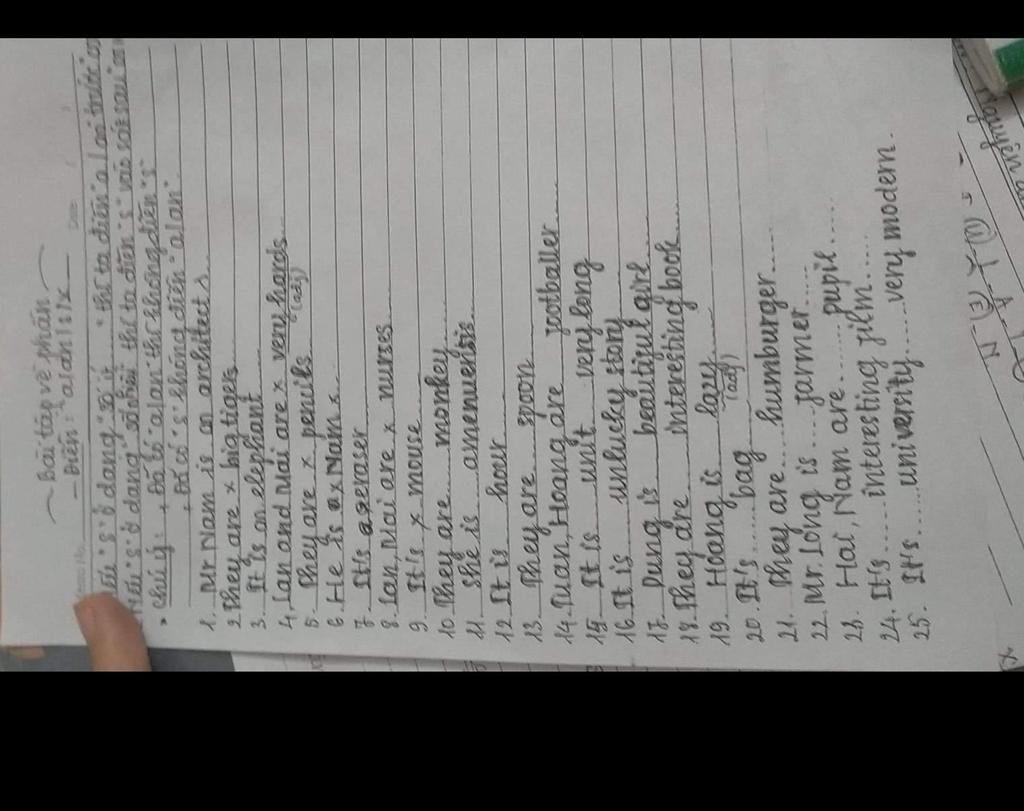 Bài tập về phần
- Điền: "a/an/s/x
Nếu "s" ở dạng số ít thì ta điền a/an trước
Nếu "s" ở dạng số nhiều thì ta điền "s" vào sát sau
* chú ý: + Đã có "a/an" thì không điền "s"
+ Đã có "s" không điền "a/an".
1. Mr Nam is an architect x
2. They are x big tigers
3. It is an elephant
4. Lan and Mai are x very hards
(adj)
5. They are x pencils
6. He is a x Nam x
7. It's a eraser
8. Lan, Mai are x nurses
9. It's x mouse
10. They are monkey
11. She is amanuensis
12. It is hour
13. They are spoon
14. Tuan, Hoang are footballer
15. It is unit very long
16. It is unlucky story
17. Dung is beautiful girl
18. They are interesting book
19. Hoang is lazy
(adj)
20. It's bag
21. They are humburger
22. Mr. Long is farmer
23. Hai, Nam are pupil
24. It's interesting film
25. It's university very modern.